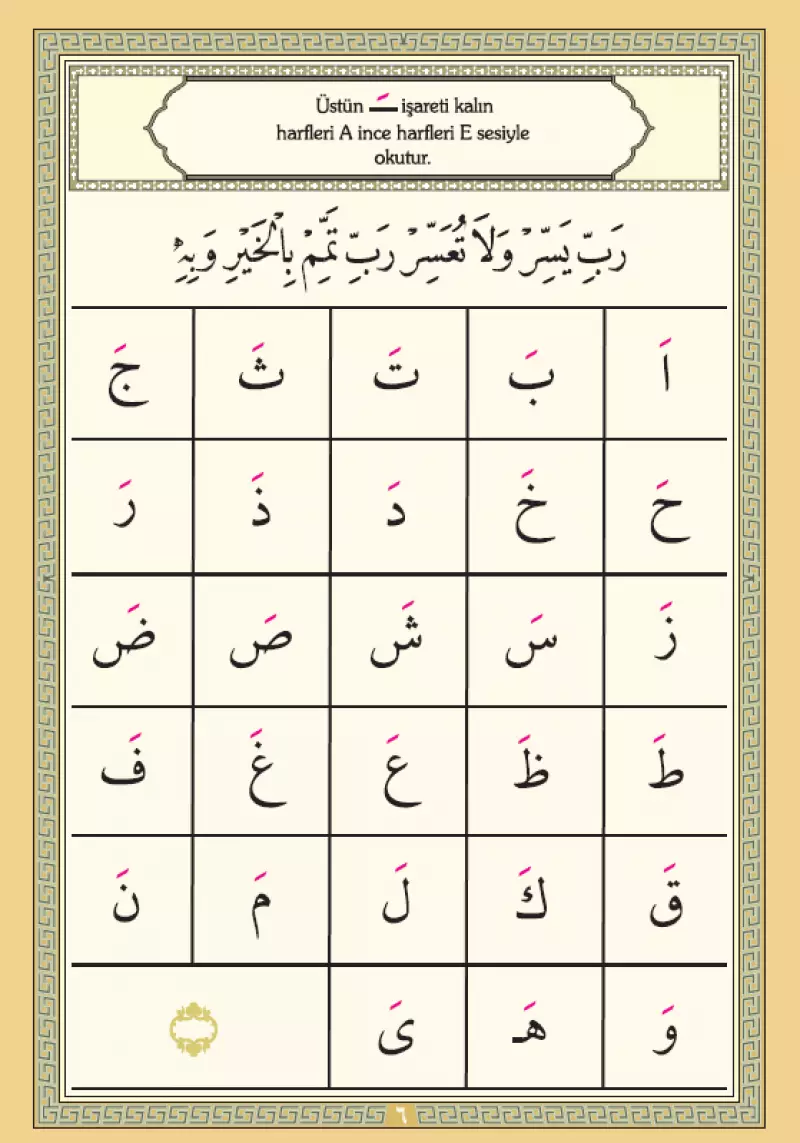 Üstün ـَ işareti kalın
harfleri A ince harfleri E sesiyle
okutur.
رَبِّ يَسِّرْ وَلَا تُعَسِّرْ رَبِّ تَمِّمْ بِالْخَيْرِ وَبِهِ
اَ بَ تَ ثَ جَ
حَ خَ دَ ذَ رَ
زَ سَ شَ صَ ضَ
طَ ظَ عَ غَ فَ
قَ كَ لَ مَ نَ
وَ هَـ ىَ
٦